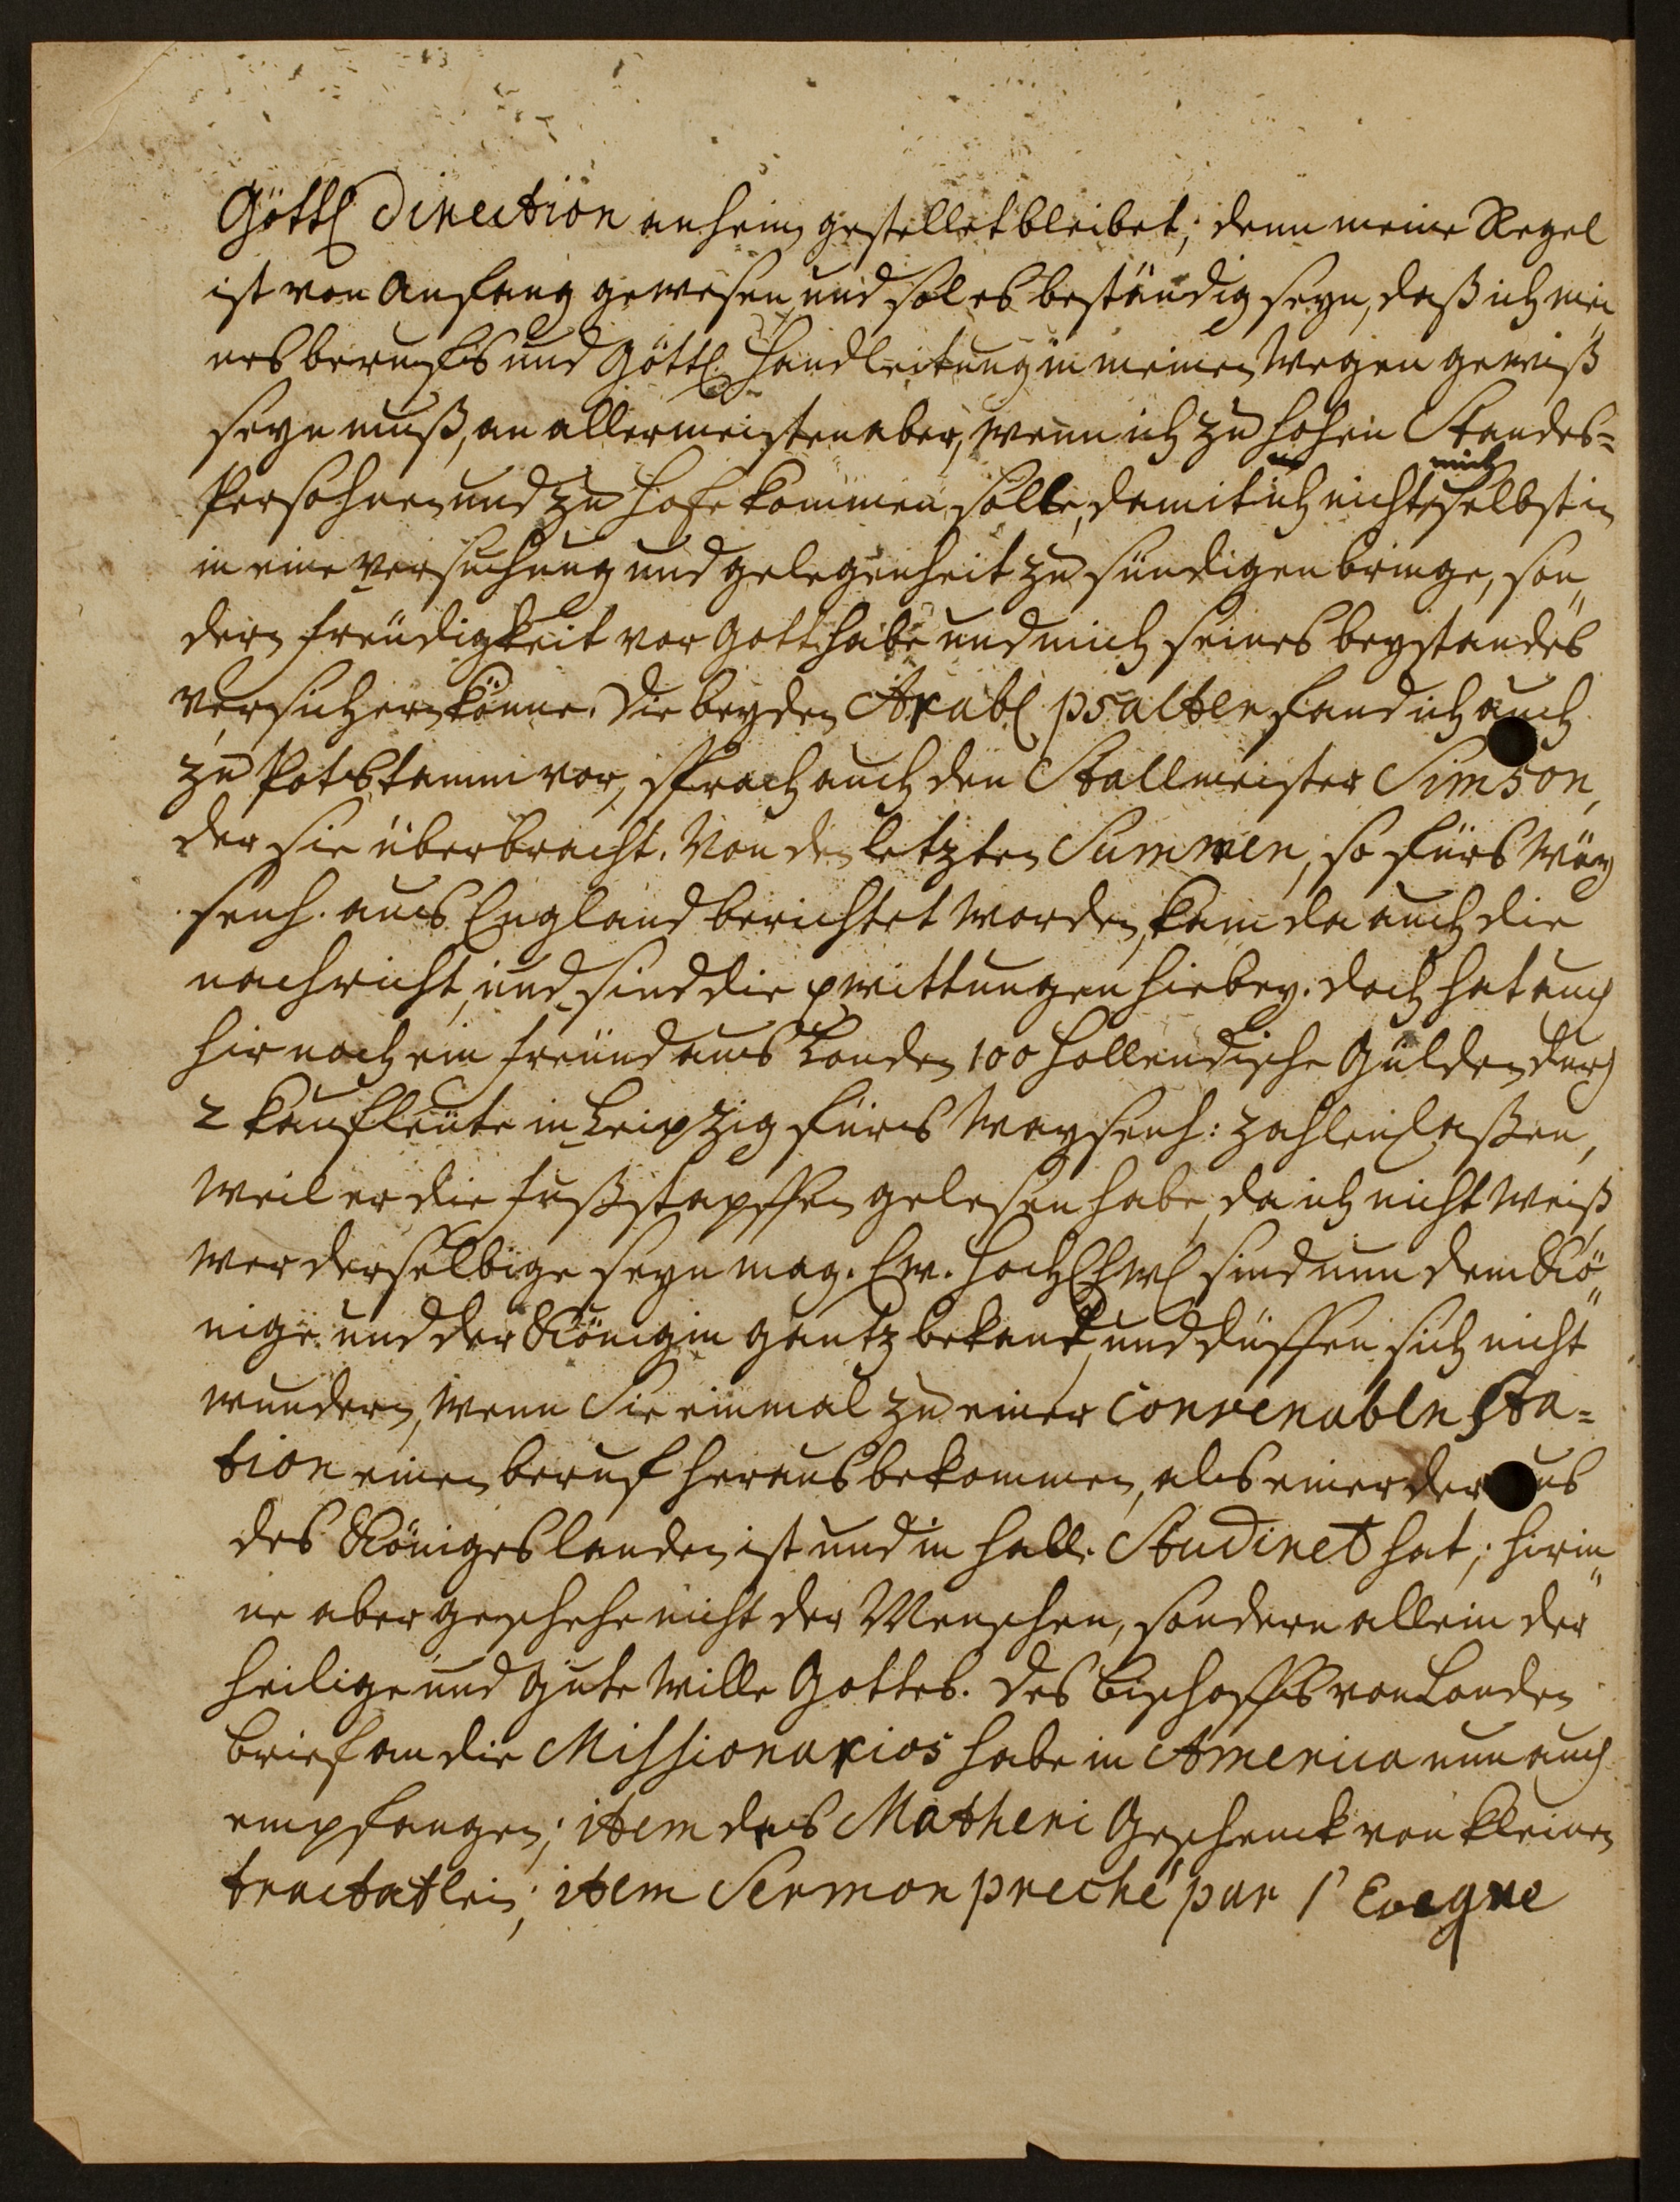 Göttl Direction anheim gestellet bleibet; denn meine Regel
ist von Anfang gewesen und sol es beständig seyn, daß ich mei
nes beruffs und Göttl. Handleitung in meinen Wegen gewiß
seyn muß, an allermeisten aber, wenn ich zu hohen Standes=
Persohnen und zu Hofe kommen solte, damit ich nicht mich selbst in
in eine Versuchung und gelegenheit zu sündigen bringe, son„
dern freudigkeit vor Gott habe und mich seines beystandes
versichern könne. Die beyden Arabl psalter fand ich auch
zu Potstamm vor, sprach auch den Stallmeister Simson,
der sie überbracht. Von den letzten Summen, so fürs Way
senh. aus England berichtet worden, kam da auch die
nachricht, und sind die qvittungen hiebey. doch hat auch
hir noch ein freund aus Londen 100 Hollendische Gulden durch
2 Kaufleute in Leipzig fürs Waysenh: zahlen laßen,
weil er die fußstapffen gelesen habe, da ich nicht weiß
wer derselbige seyn mag. Ew. HochEhrw sind nun dem Kö„
nige und der Königin gantz bekant, und düffen sich nicht
wundern, wenn Sie einmal zu einer convenablen Sta=
tion einen beruf heraus bekommen, als einer der aus
des Königes landen ist und in Halle Studiret hat; hirin„
ne aber geschehe nicht der Menschen, sondern allein der
heilige und gute Wille Gottes. des Bischoffs von Londen
brief an die Missionarios habe in America nun auch
empfangen; item des Matheri Geschenck von kleinen
tractatlein; item Sermon preché par l' Eveqve